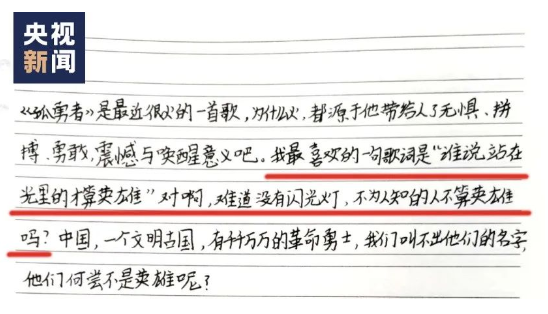 央视
新闻
《孤勇者》是最近很火的一首歌，为什么火，都源于他带给人了无惧、拼
搏、勇敢，震憾与唤醒意义吧。我最喜欢的一句歌词是“谁说站在
光里的才算英雄”对啊，难道没有闪光灯，不为人知的人不算英雄
吗？中国，一个文明古国，有千千万万的革命勇士，我们叫不出他们的名字，
他们何尝不是英雄呢？